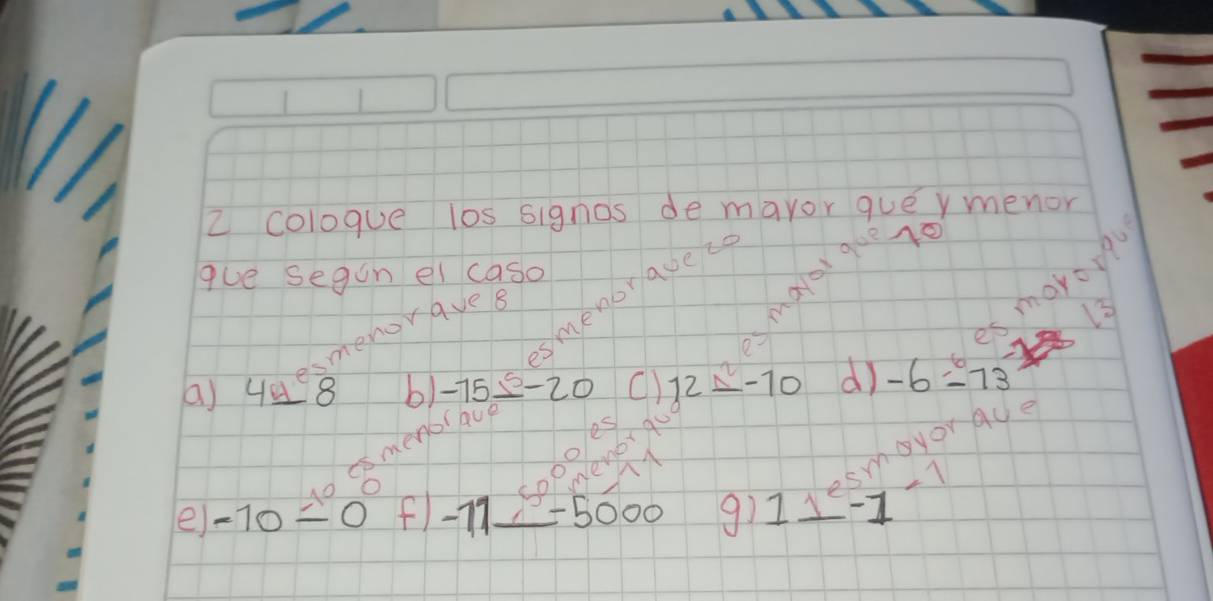 2 coloque los signos de mayor que y menor
que segun el caso
a) 4 __ 8 b) -15 __ -20 c) 12 __ -10 d) -6 __ 13
4 es menor que 8
15 es menor que 20
12 es mayor que 10
-6 es mayor que -13
e) -10 __ 0 f) -11 __ -5000 g) 1 __ -1
-10 es menor que 0
-5000 es menor que -11
1 es mayor que -1